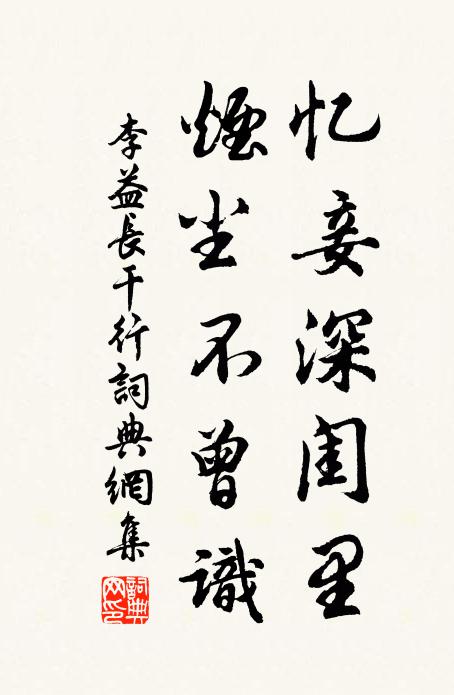 忆妾深闺里
煙尘不曾識
李益長干行詞典網集
詞典网印